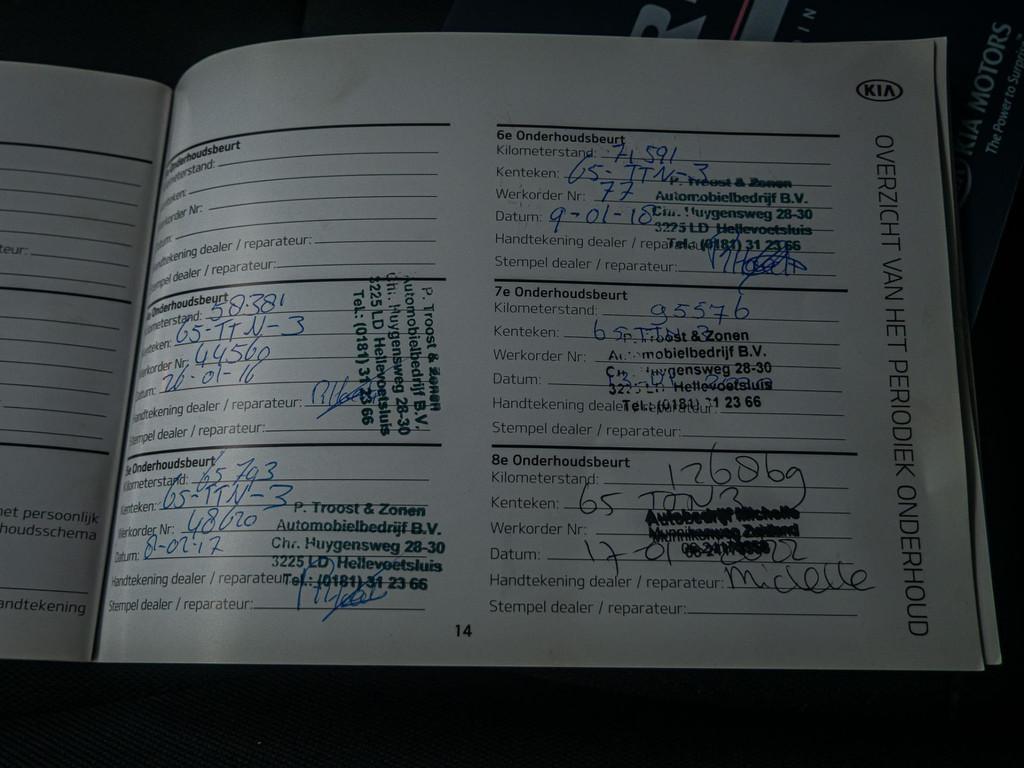 KIA
OVERZICHT VAN HET PERIODIEK ONDERHOUD
KIA MOTORS
The Power to Surprise
eur:
het persoonlijk
houdsschema
andtekening
Onderhoudsbeurt
meterstand:
Kenteken:
Werkorder Nr:
Datum:
Handtekening dealer / reparateur:
Stempel dealer / reparateur:
Onderhoudsbeurt
Kilometerstand: 58.381
Kenteken: 65-TTN-3
Werkorder Nr: 44560
Datum: 26-01-16
Handtekening dealer / reparateur:
Stempel dealer / reparateur:
P. Troost & Zonen
Automobielbedrijf B.V.
Chr. Huygensweg 28-30
3225 LD Hellevoetsluis
Tel.: (0181) 31 23 66
5e Onderhoudsbeurt
Kilometerstand: 65793
Kenteken: 65-TTN-3
Werkorder Nr: 48620
Datum: 01-02-17
Handtekening dealer / reparateur:
Stempel dealer / reparateur:
P. Troost & Zonen
Automobielbedrijf B.V.
Chr. Huygensweg 28-30
3225 LD Hellevoetsluis
Tel.: (0181) 31 23 66
6e Onderhoudsbeurt
Kilometerstand: 71.591
Kenteken: 65-TTN-3
Werkorder Nr: 77
Datum: 9-01-18
Handtekening dealer / reparateur:
Stempel dealer / reparateur:
P. Troost & Zonen
Automobielbedrijf B.V.
Chr. Huygensweg 28-30
3225 LD Hellevoetsluis
Tel.: (0181) 31 23 66
7e Onderhoudsbeurt
Kilometerstand: 95576
Kenteken: 65-TTN-3
Werkorder Nr:
Datum:
Handtekening dealer / reparateur:
Stempel dealer / reparateur:
P. Troost & Zonen
Automobielbedrijf B.V.
Chr. Huygensweg 28-30
3225 LD Hellevoetsluis
Tel.: (0181) 31 23 66
8e Onderhoudsbeurt
Kilometerstand: 126869
Kenteken: 65 TTN 3
Werkorder Nr:
Datum: 17-01-2022
Handtekening dealer / reparateur: Michelle
Stempel dealer / reparateur:
Autobedrijf
14